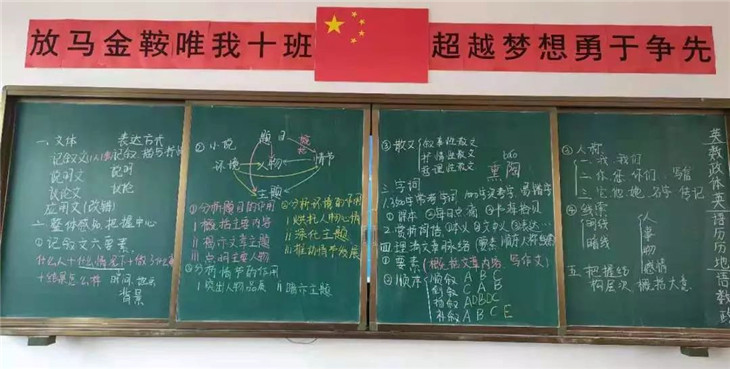 放马金鞍唯我十班
超越梦想勇于争先
一、文体 表达方式
记叙文(人物)记叙、描写、抒情
说明文 说明
议论文 议论
应用文(改错)
二、整体感知 把握中心
①记叙文六要素
什么人+什么情况下+做了什么事
+结果怎么样 时间、地点
背景
②小说
题目
环境 人物 情节
主题
①分析题目的作用
1概括主要内容
2揭示文章主题
3点明主要人物
②分析情节的作用
1突出人物品质 2揭示主题
③分析环境的作用
1烘托人物心情
2深化主题
3推动情节发展
③散文
叙事性散文
抒情性散文
哲理性散文
熏陶
三、字词
2.赏析词语 ①本义②文中义③表达
四、理清文章脉络
①要素(概括文章内容 写作文)
②顺序 顺叙 A B C
倒叙 C A B
插叙
补叙 A B C E
③人称
一、我 我们
二、你 您 你们
三、它 他 她 名字 传记
④线索
明线
暗线
人
事
物
感情
五、把握结
构层次 概括大意
英数政体英语历历地语数政